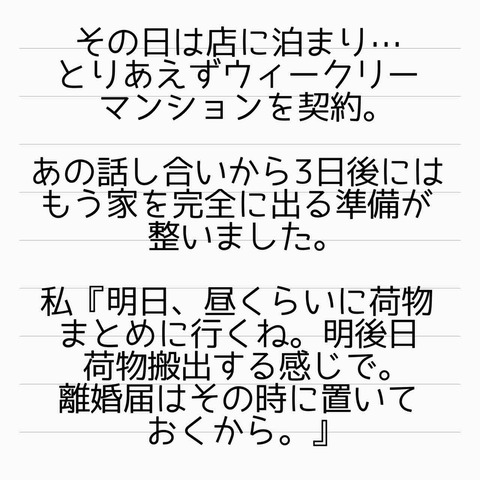 その日は店に泊まり…
とりあえずウィークリー
マンションを契約。
あの話し合いから3日後には
もう家を完全に出る準備が
整いました。
私『明日、昼くらいに荷物
まとめに行くね。明後日
荷物搬出する感じで。
離婚届はその時に置いて
おくから。』